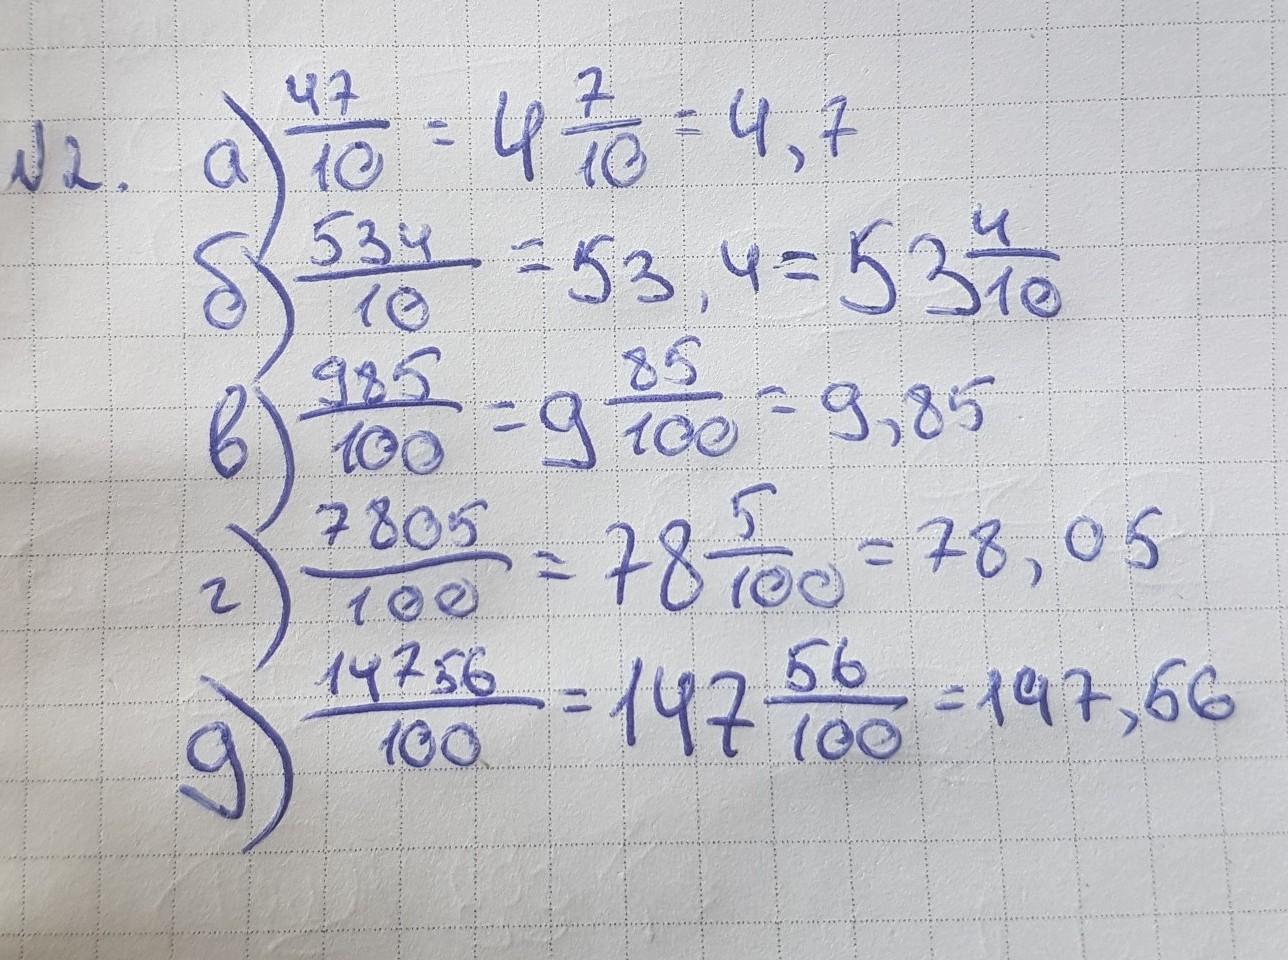 №2. а) 47/10 = 4 7/10 = 4,7
б) 534/10 = 53,4 = 53 4/10
в) 985/100 = 9 85/100 = 9,85
г) 7805/100 = 78 5/100 = 78,05
д) 14756/100 = 147 56/100 = 147,56